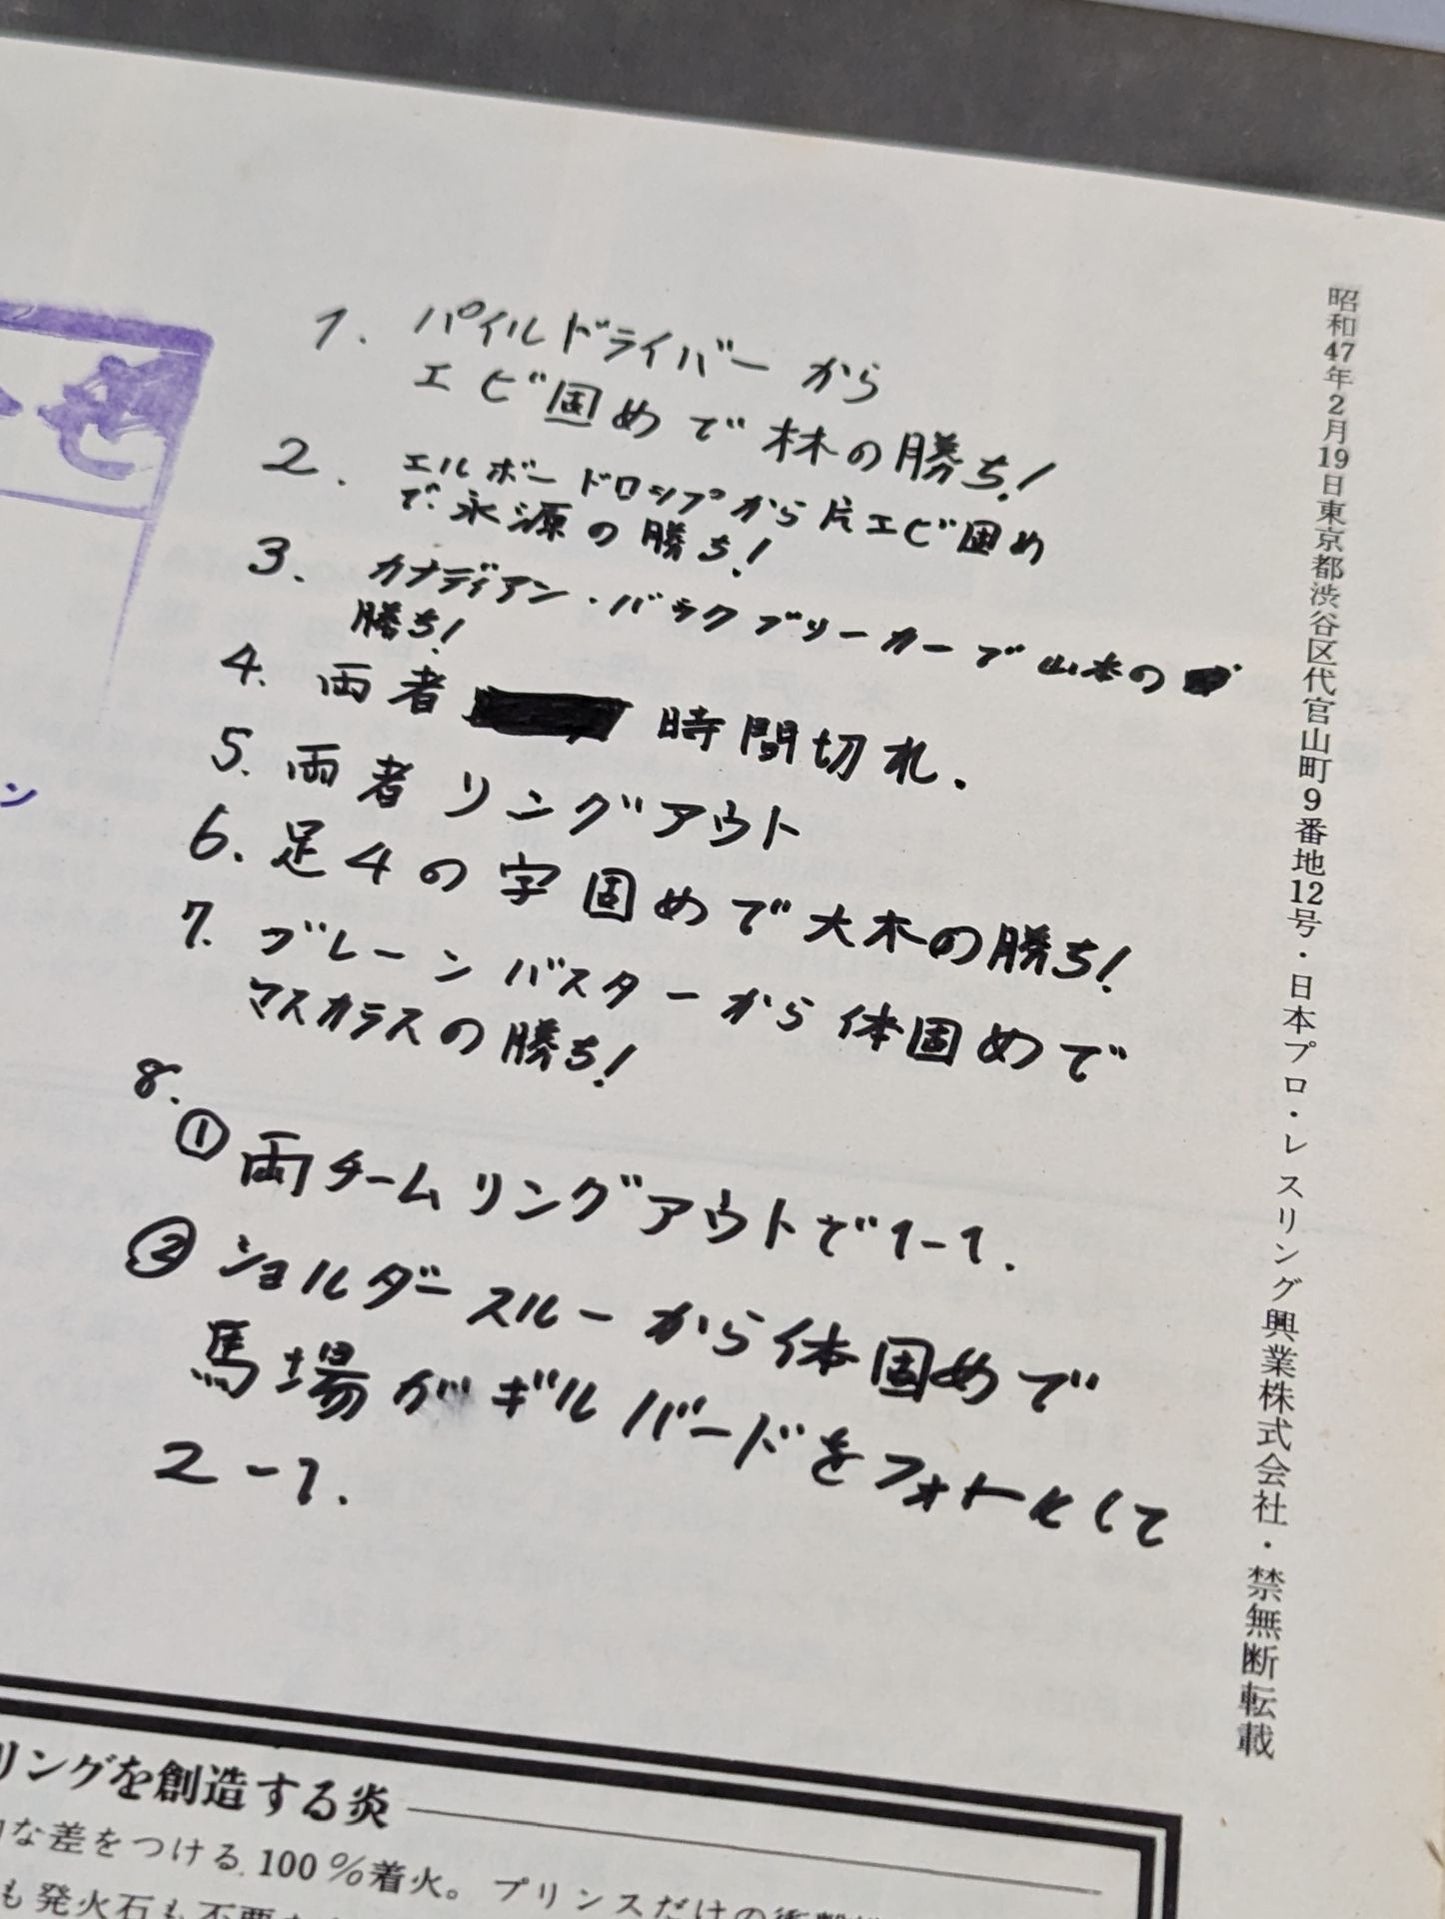 1. パイルドライバーから
エビ固めで林の勝ち!
2. エルボードロップから片エビ固め
で永源の勝ち!
3. カナディアン・バックブリーカーで山本の
勝ち!
4. 両者 時間切れ.
5. 両者リングアウト
6. 足4の字固めで大木の勝ち!
7. ブレーンバスターから体固めで
マスカラスの勝ち!
8.
① 両チームリングアウトで1-1.
② ショルダースルーから体固めで
馬場がギルバードをフォールして
2-1.
昭和47年2月19日東京都渋谷区代官山町9番地12号・日本プロ・レスリング興業株式会社・禁無断転載
ン
リングを創造する炎
な差をつける100%着火。プリンスだけの
も発火石も不要